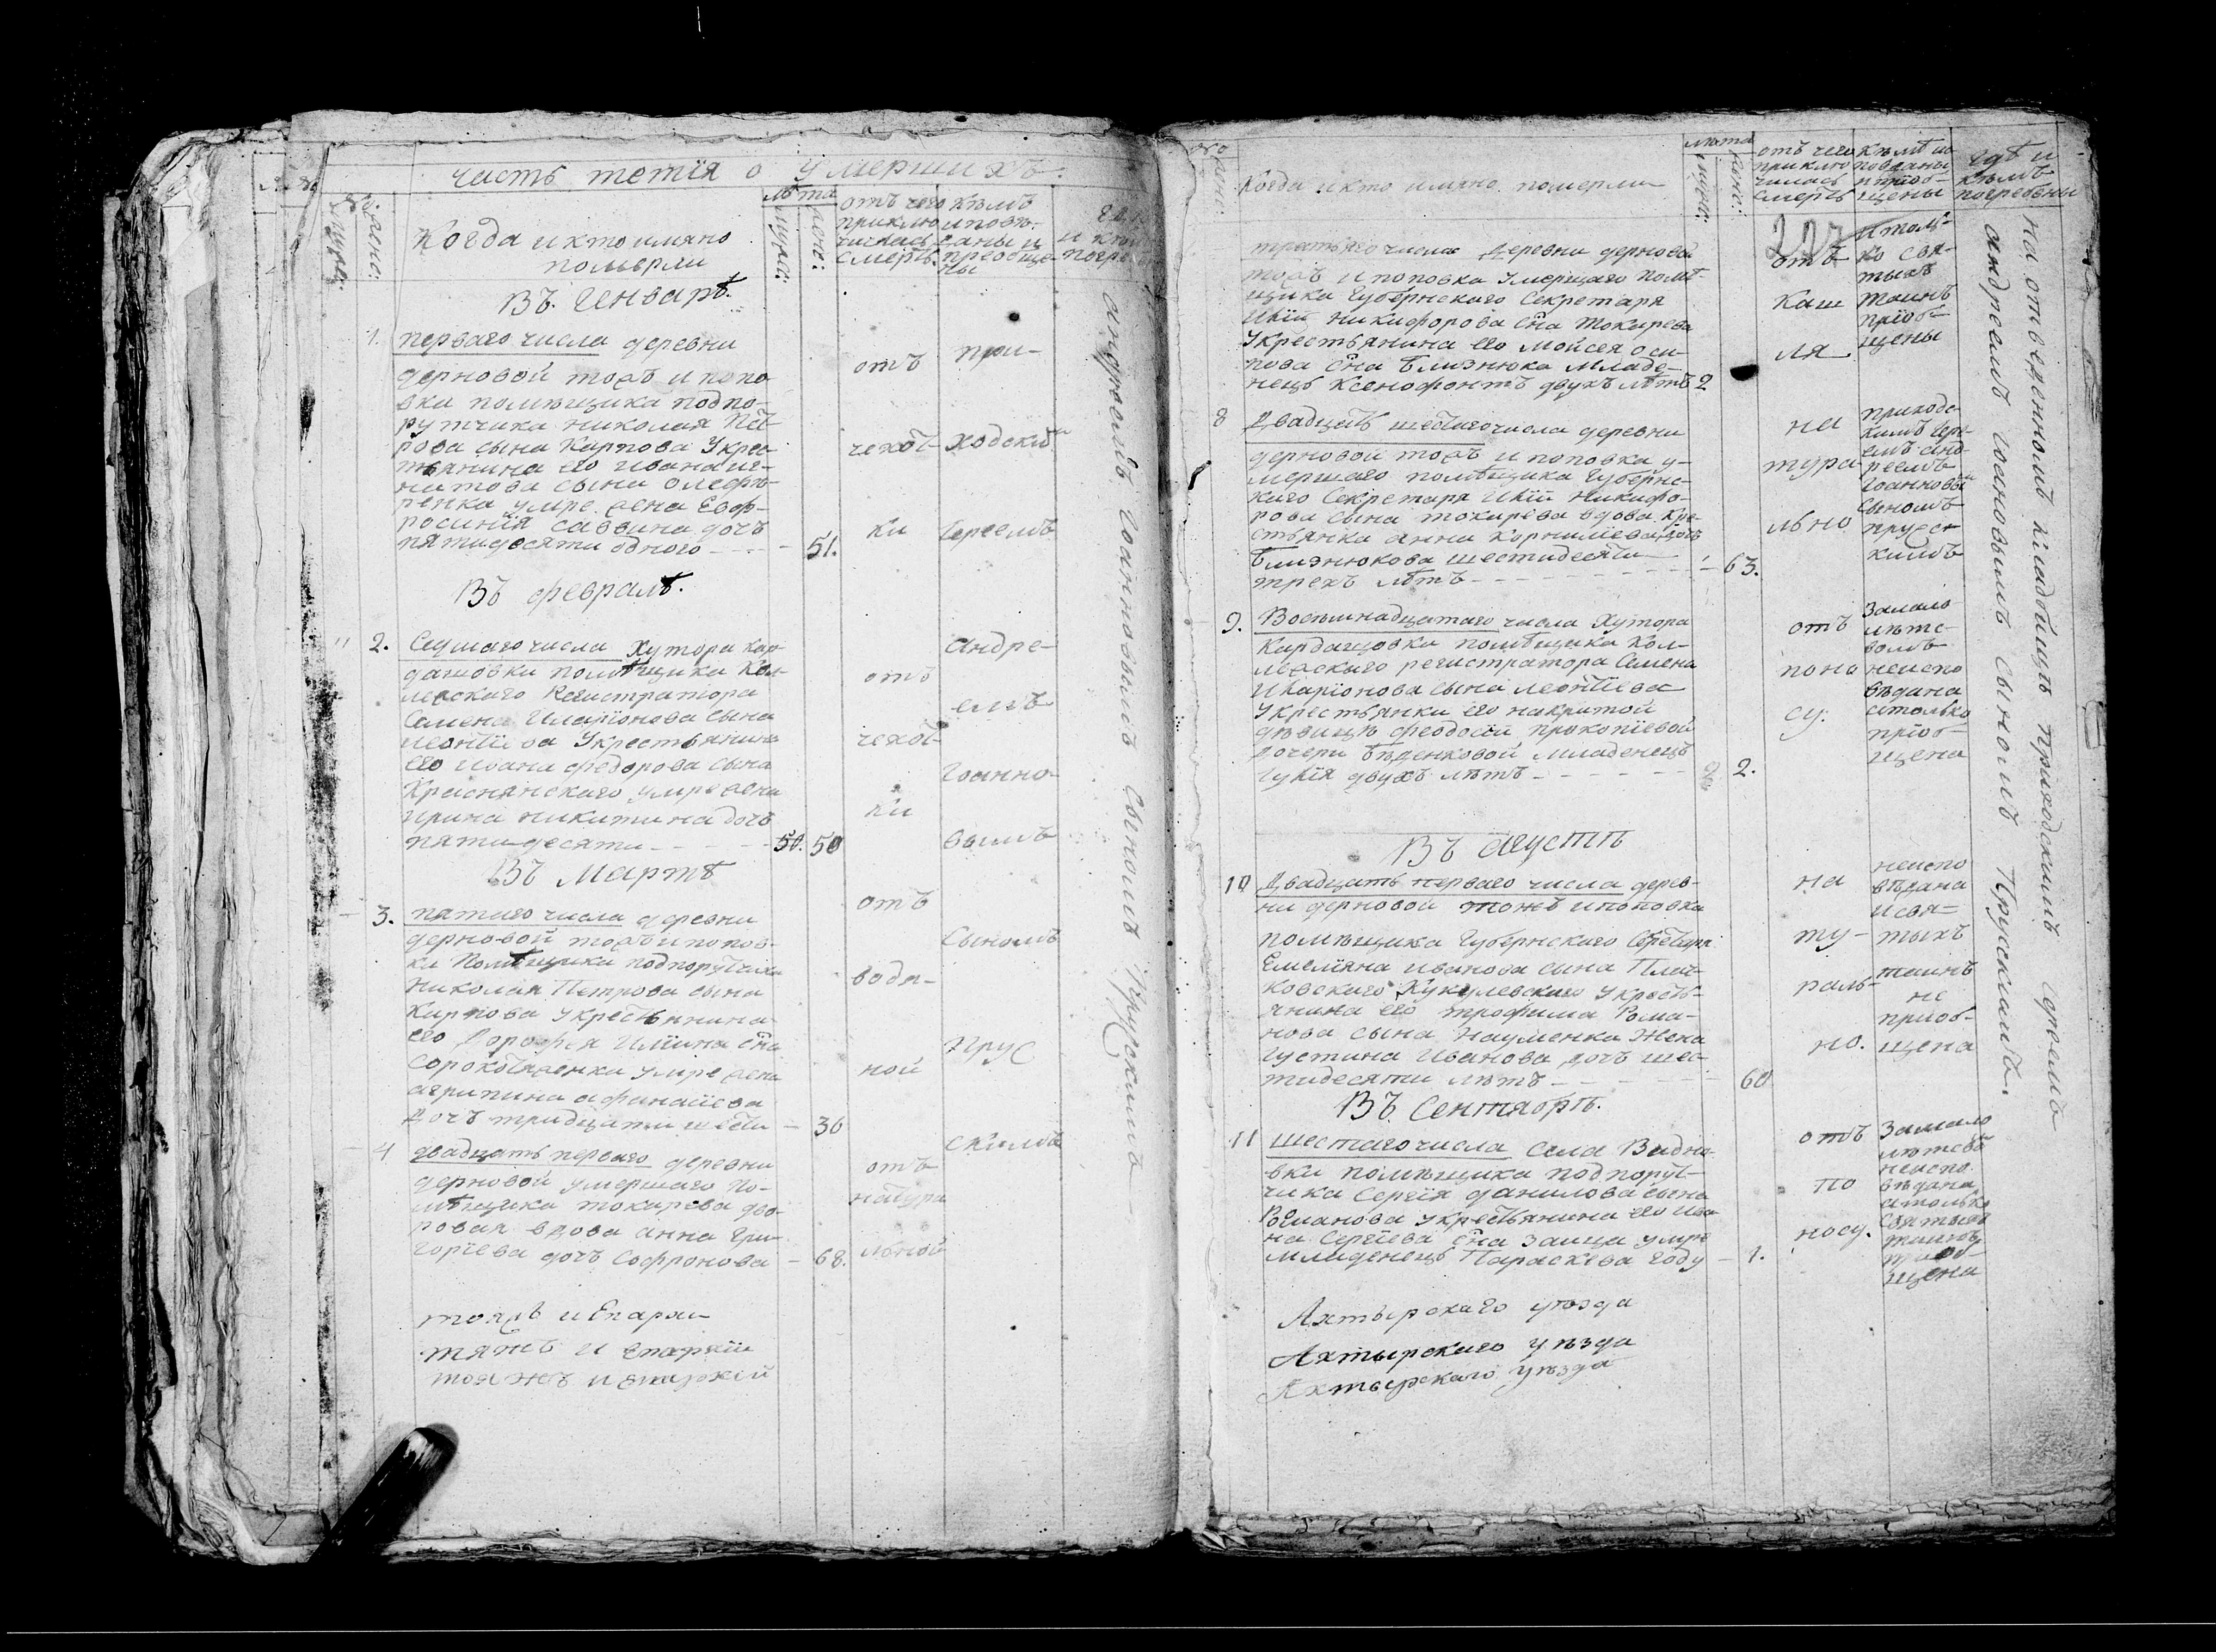 часть тетїя о умершихъ:
Когда икто имяно
померли
лѣта
мужес:
жено:
отъ чего
приклю
чилась
смерть
кѣмъ
исповѣ-
даны и
преобще-
ны
Въ Генварѣ.
1. перваго числа деревни
дерновой тожъ и попо-
вки помѣщика подпо-
рутчика николая Пет-
рова сына Карпова Укрес-
тьянина его ивана иг-
натова сына олефи-
ренка умре жена Евф-
росинїя саввина дочъ
пятидесяти одного 51.
отъ
чехот-
ки
Въ февралѣ.
2. Седмаго числа Хутора кар-
дашовки помѣщика Кол-
лежскаго Регистратора
Семена Иларїонова сына
леонтїева Укрестьянина
его Ивана федорова сына
Краснянскаго умре жена
ирина никитина дочъ
пятидесяти 50. 50
отъ
чехот-
ки
Въ Мартѣ
3. пятаго числа деревни
дерновой тожъ и попов-
ки Помѣщика подпорутчика
николая Петрова сына
Карпова укрестьянина
его Дорофея Илїина сна
умре жена
агрипина афанасїева
Дочъ тридцати шести 36
отъ
водя-
ной
4 двадцать перваго деревни
дерновой умершаго по-
мѣщика токарева дво-
ровая вдова анна гри-
горїева дочъ Софронова 68.
отъ
натура
льной
при-
ходскимъ
Іереемъ
андре-
емъ
Іоанно-
вымъ
Сыномъ
Прус
скимъ
андреемъ Іоанновымъ сыномъ Прускимъ
тожъ и Епархи
тяжъ и Епархїи
тояжъ и Епархїи
Когда икто имяно померли
лѣта
мужес:
жено:
отъ чего
приклю
чилась
смерть
Кѣмъ ис
повѣданы
и прїоб-
щены
гдѣ и
кѣмъ
погребены
207
третьяго числа Деревни дерновой
тожъ и поповка умершаго помѣ-
щика Губернскаго Секретаря
Илїи никифорова сна Токарева
Укрестьянина его Мойсея оси-
пова сна Близнюка Младе-
нецъ Ксенофонтъ двухъ лѣтъ 2
отъ
каш
ля
итоль-
ко свя-
тыхъ
таинъ
прїоб-
щены
8 Двадцать шестаго числа деревни
дерновой тожъ и поповка у-
мершаго помѣщика Губернс-
каго Секретаря Илїи Никифо-
рова сына токарева вдова кре-
стьянка анна Корнилїева дочъ
Близнюкова шестидесяти
трехъ лѣтъ 63.
на
тура-
льно
приходс-
кимъ Іере-
емъ анд-
реемъ
Іоанновым
сыномъ
прусс
кимъ
9. Восемнадцатаго числа Хутора
Кардашовки помѣщика Кол-
лежскаго регистратора Семена
Иларїонова сына леонтїева
Укрестьянки его накритой
дѣвицы феодосїи прокопїевой
дочери Бѣденковой младенецъ
Іулїя двухъ лѣтъ 2 2.
отъ
поно
су.
Замало
лѣтс-
вомъ
неиспо
вѣдана
атолько
прїоб-
щена
Въ августѣ
10 Двадцать перваго числа дерев-
ни дерновой тожъ ипоповка
помѣщика Губернскаго Секретаря
Емелїяна иванова сина Плач-
ковскаго Кукулевскаго укресть-
янина его трофима Рома-
нова сына Науменка Жена
Густина Иванова дочъ шес-
тидесяти лѣтъ 60
на
ту-
раль-
но.
неиспо
вѣдана
исвя-
тыхъ
таинъ
не
прїоб-
щена
Въ Сентябрѣ.
11 шестаго числа Села Видно-
вки помѣщика подпорут-
чика Сергїя данилова сына
Романова укрестьянина его Ива
на Сергїева сна Заица умре
младенецъ Параскева году 1.
отъ
по
носу.
Замало
лѣтсвом
неиспо-
вѣдана
атолько
святыхъ
таинъ
прїоб-
щена
на отведенномъ кладбищѣ приходскимъ Іереемъ
андреемъ Іоанновымъ сыномъ Прускимъ.
Ахтырскаго уѣзда
Ахтырскаго уѣзда
Ахтырскаго уѣзда